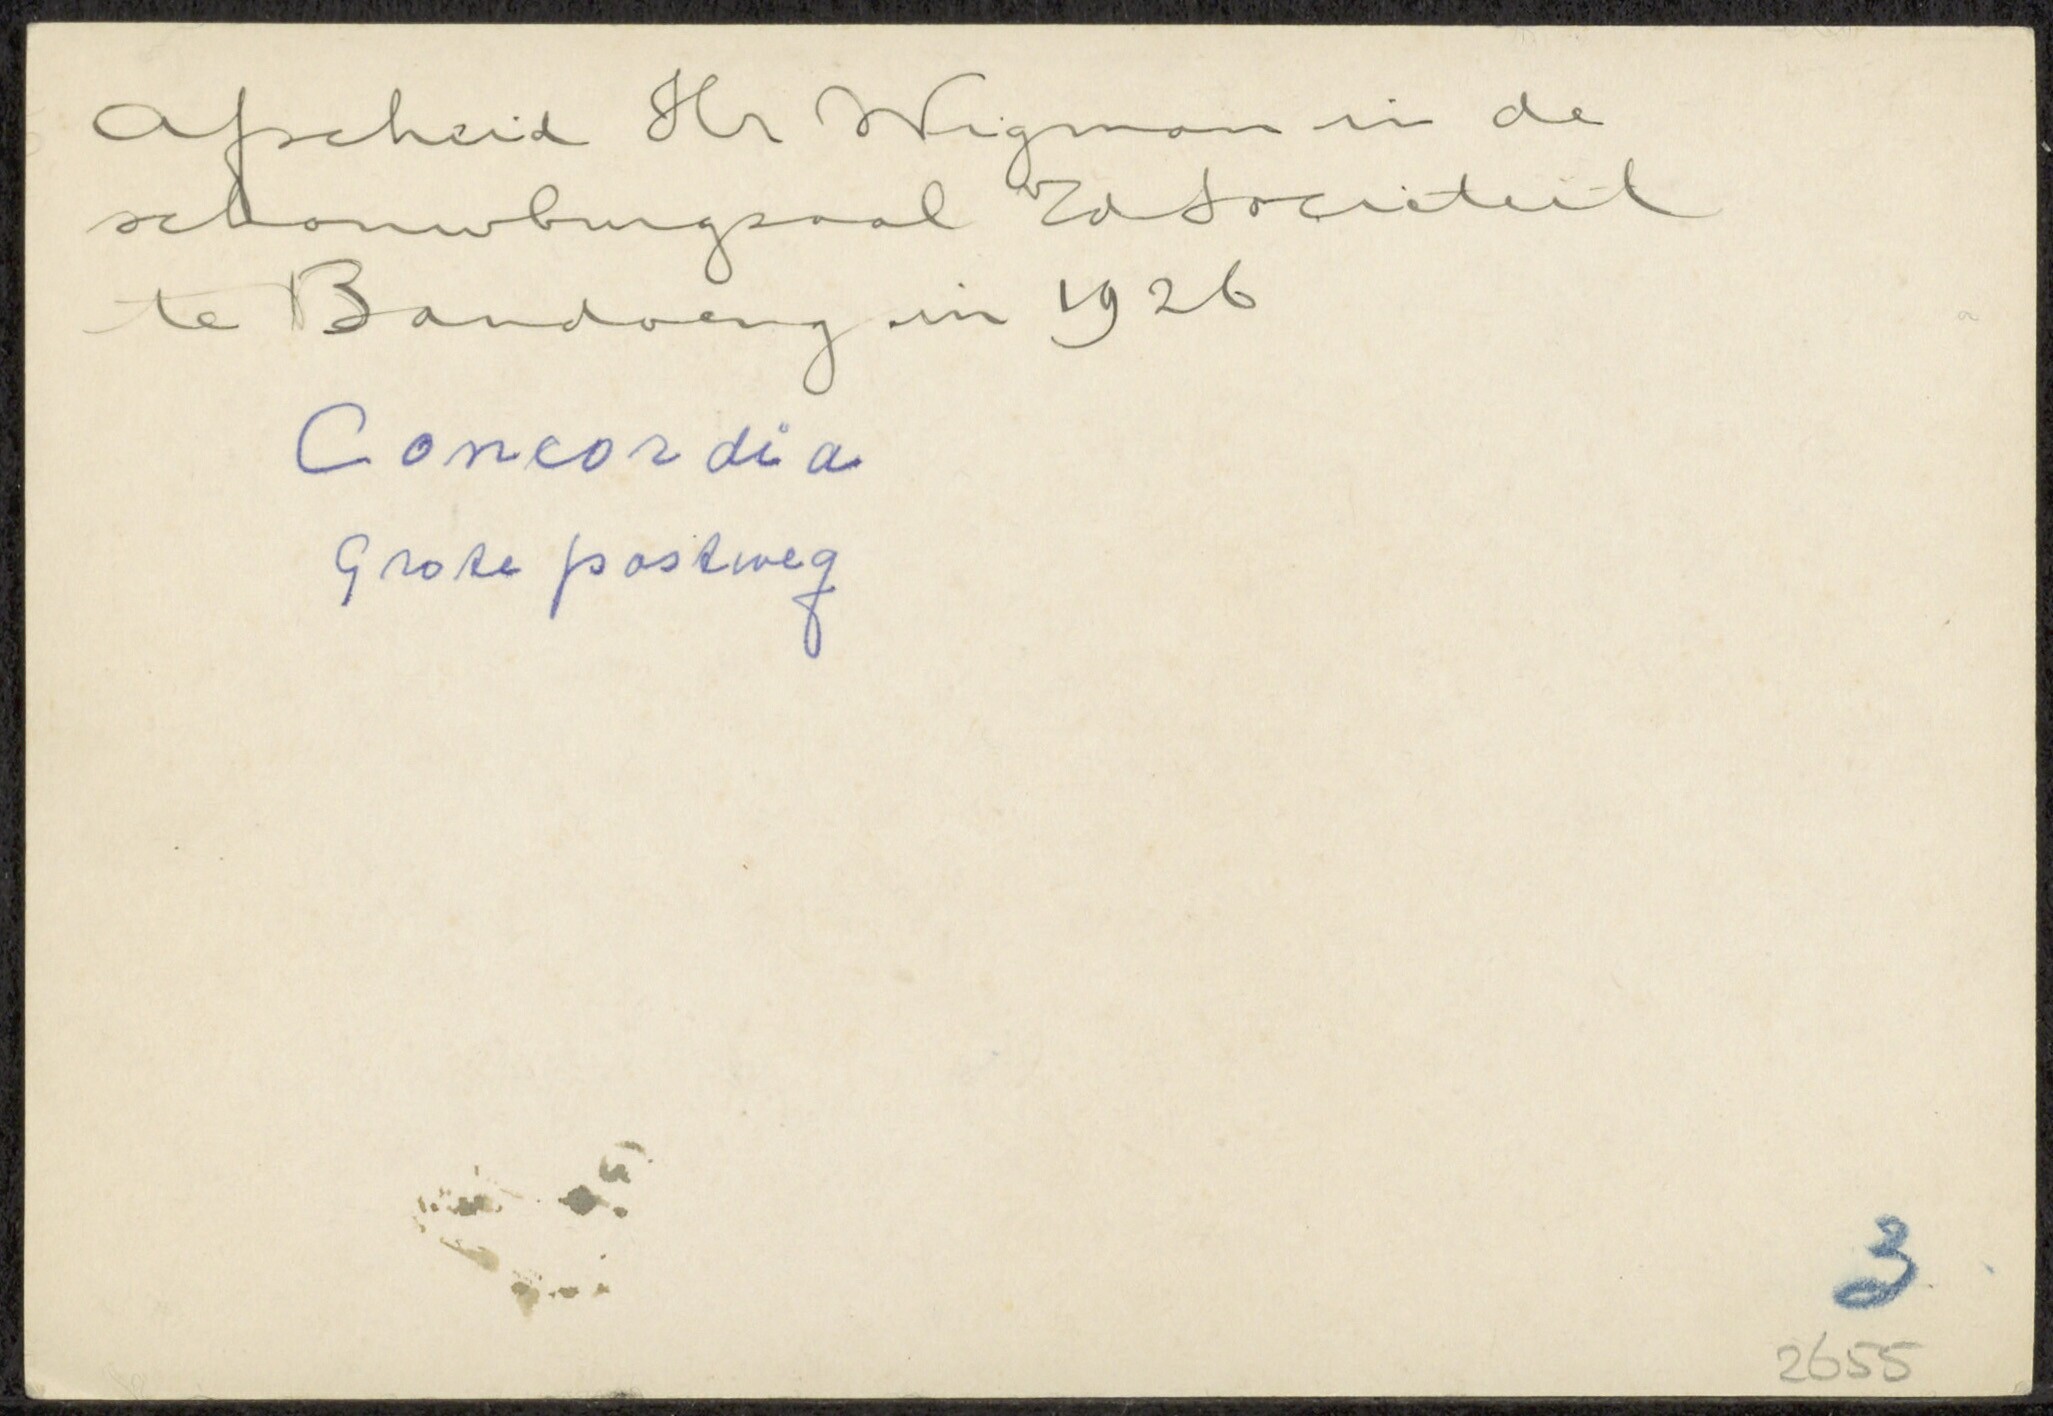 Afscheid Hr Wigman in de
schouwburgzaal v/d Societeit
te Bandoeng in 1926
Concordia
Grote postweg
3
2655